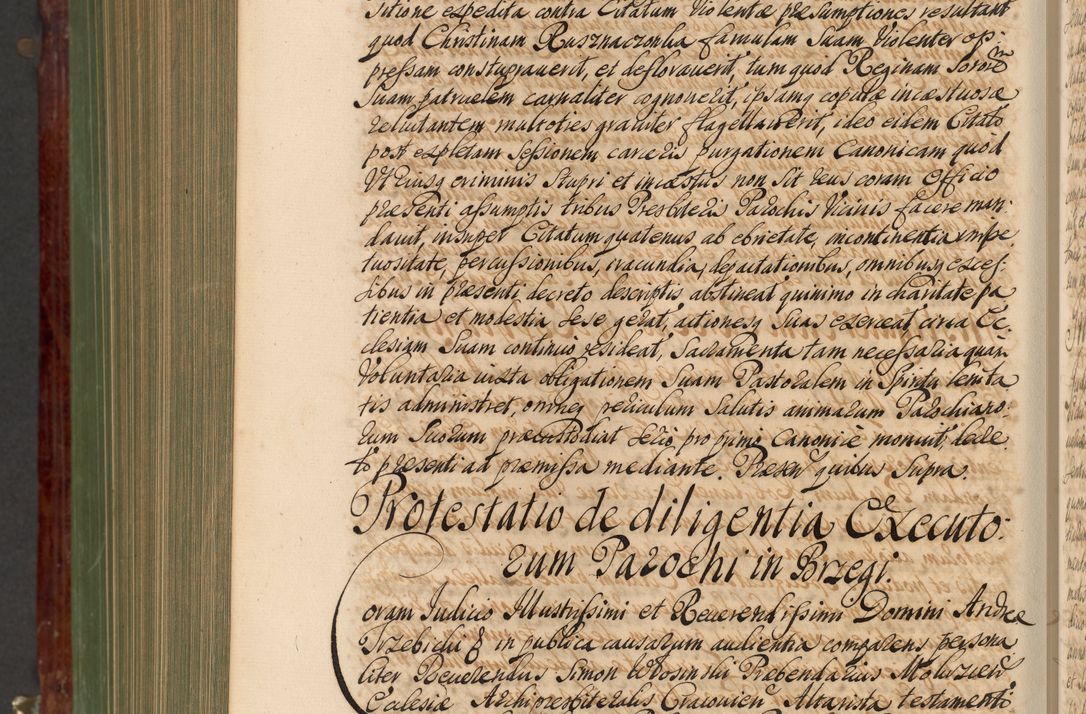 sitione expedita contra Citatum violentæ præsumptiones resultant
quod Christinam Rusznaczonka famulam suam violenter op-
pressam constupraverit, et defloraverit, tum quod Reginam Sororem
suam patruelem carnaliter cognoverit, ipsamq copulæ incæstuosæ
reluctantem multoties graviter flagellaverit, ideo eidem Citato
post expletam Sessionem carceris purgationem Canonicam quod
Utriusq criminis Stupri et incæstus non sit reus coram Officio
præsenti assumptis tribus Presbiteris Parochis Vicinis facere man-
davit, insuper Citatum quatenus ab ebrietate, incontinentia, impe-
tuositate, percussionibus, iracundia, depactationibus, omnibusq exces-
sibus in præsenti decreto descriptis abstineat quinimo in charitate pa
tientia et modestia sese gerat, actionesq suas exerceat, circa Ec-
clesiam Suam continuo resideat, Sacramenta tam necessaria quam
Voluntaria iuxta obligationem Suam Pastoralem in Spiritu lenita
tis administret, omneq periculum Salutis animarum Parochiano-
rum Suorum præcustodiat serio pro primo Canonicè monuit, decre
to præsenti ad præmissa mediante. Præsen quibus Supra.
Protestatio de diligentia Executo-
rum Parochi in Brzegi.
Coram Iudicio Illustrissimi et Reverendissimi Domini Andreæ
Trzebicki & in publica causarum audientia comparens persona
liter Reverendus Simon Wosinski Præbendarius
Ecclesiæ Archipresbiteralis Cracovien Altarista testamenti